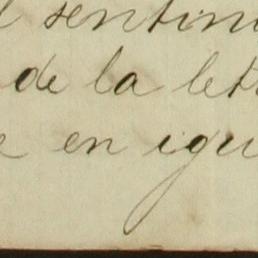 l sentim
de la let
e en igu